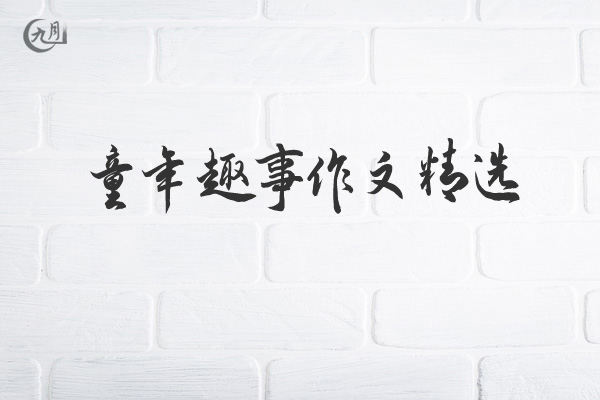 九月
童年趣事作文精选